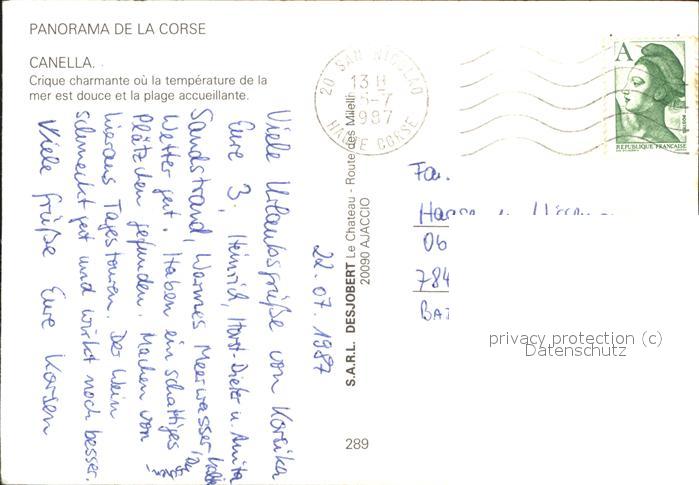 PANORAMA DE LA CORSE
CANELLA.
Crique charmante où la température de la
mer est douce et la plage accueillante.
Viele Urlaubsgrüße von Korsika
Eure 3, Heinrich, Horst-Dieter u. Anita
Sandstrand, Warmes Meerwasser,
Wetter gut. Haben ein schattiges
Plätzchen gefunden. Machen von
hieraus Tagestouren. Der Wein
schmeckt gut und wirkt noch besser.
Viele Grüße Eure Korsen
22.07.1987
S.A.R.L. DESJOBERT Le Chateau - Route des Milelli
20090 AJACCIO
289
20 SAN NICOLAO
13 H
-7
1987
HAUTE CORSE
A
REPUBLIQUE FRANCAISE
Fam.
06
784
BA
privacy protection (c)
Datenschutz